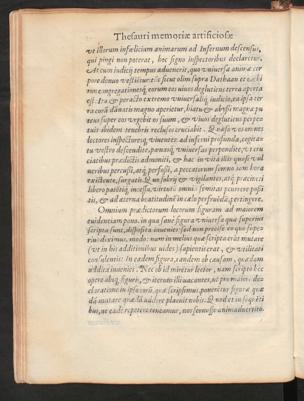 Thesauri memoriæ artificiosæ
vt illorum infœlicium animarum ad Infernum descensus,
qui pingi non poterat, hoc signo inspectoribus declaretur.
At cum iudicij tempus aduenerit, quo vniuersa animæ cor
pore denuo vestiūtur: tūc sicut olim supra Dathaan et
rone congregationem, eorum eos viuos deglutiens terra aperta
est: ita &, peracto extremo vniuersaliq́; iudicio, ea ipsa ter
ra cum dānatis magno aperietur, hiatu &, abyssi magnæ pu
teus super eos vrgebit os suum, &, viuos deglutiens perpe
tuis ibidem tenebris reclusos cruciabit. Quæso vos omnes
doctores inspectoresq́; viuentes ad inferni profunda, cogita
tu vestro descendite, pœnasq́; vniuersas perpendite, vt cru
ciatibus prædictis admoniti, & hac in vita illis quasi vul
neribus percussi, atq́; perfossi, a peccatorum somno iam bona
excitemini, surgatis. sobrij &, vigilantes, atq́; præcoci
libero patētiq́; incessu, virtutū omniū semitas percurrere possi
atis, & ad æterna beatitudinē in cælo perfruēda, pertingere.
Omnium prædictorum locorum figuram ad maiorem
euidentiam pono. in qua sane figura vniuersa quæ superius
scripta sunt, disposita inuenies: sed non præcise eo quo supe
rius diximus, modo: nam in melius quæ scripta erāt mutare
(vt in his additionibus vides) sapientis erat, &, vtilitati
consulentis: In eadem figura, eandem ob causam, quædam
addita inuenies. Nec ob id miretur lector, nam scriptis hec
opera absq́; figuris, &
loratione in ipsorū, quæ scripsimus, poneretur figuræ quæ
dā mutare quædā addere placuit nobis. Quod et in sequēti
bus, ne eadē repetere teneamur, nos fecisse animaduertito.